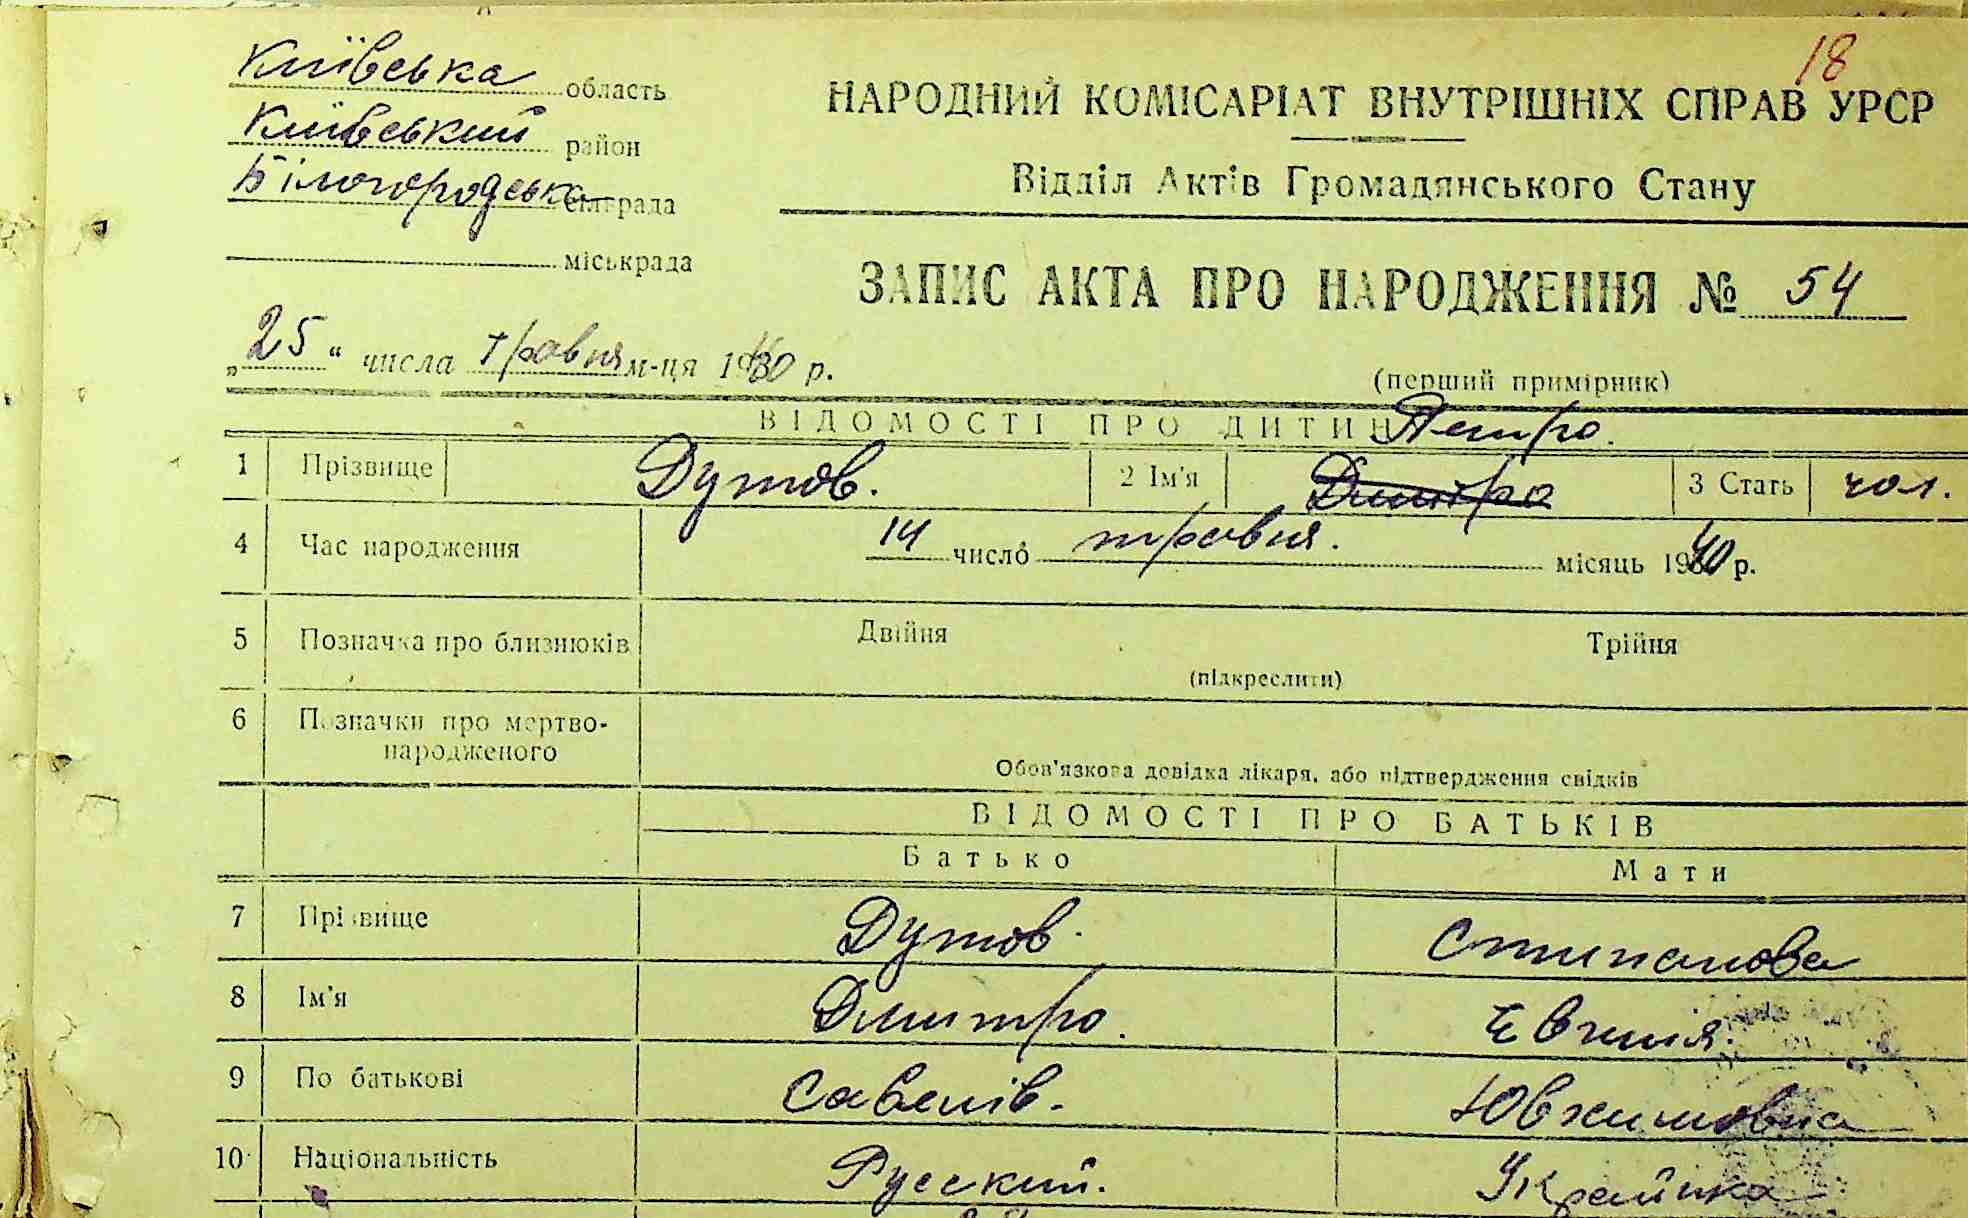 18
Київська область
Київський район
Білогородська сільрада
міськрада
НАРОДНИЙ КОМІСАРІАТ ВНУТРІШНІХ СПРАВ УРСР
Відділ Актів Громадянського Стану
ЗАПИС АКТА ПРО НАРОДЖЕННЯ № 54
„25" числа травня м-ця 1940 р.
(перший примірник)
ВІДОМОСТІ ПРО ДИТИНУ
Петро.
1 Прізвище Дутов. 2 Ім'я Дмитро 3 Стать чол.
4 Час народження 14 число травня. місяць 1940 р.
5 Позначка про близнюків Двійня Трійня
(підкреслити)
6 Позначки про мертво-
народженого
Обов'язкова довідка лікаря, або підтвердження свідків
ВІДОМОСТІ ПРО БАТЬКІВ
Батько Мати
7 Прізвище Дутов. Стипанова
8 Ім'я Дмитро. Євгенія.
9 По батькові Савелів. Ювхимовна
10 Національність Русский. Українка